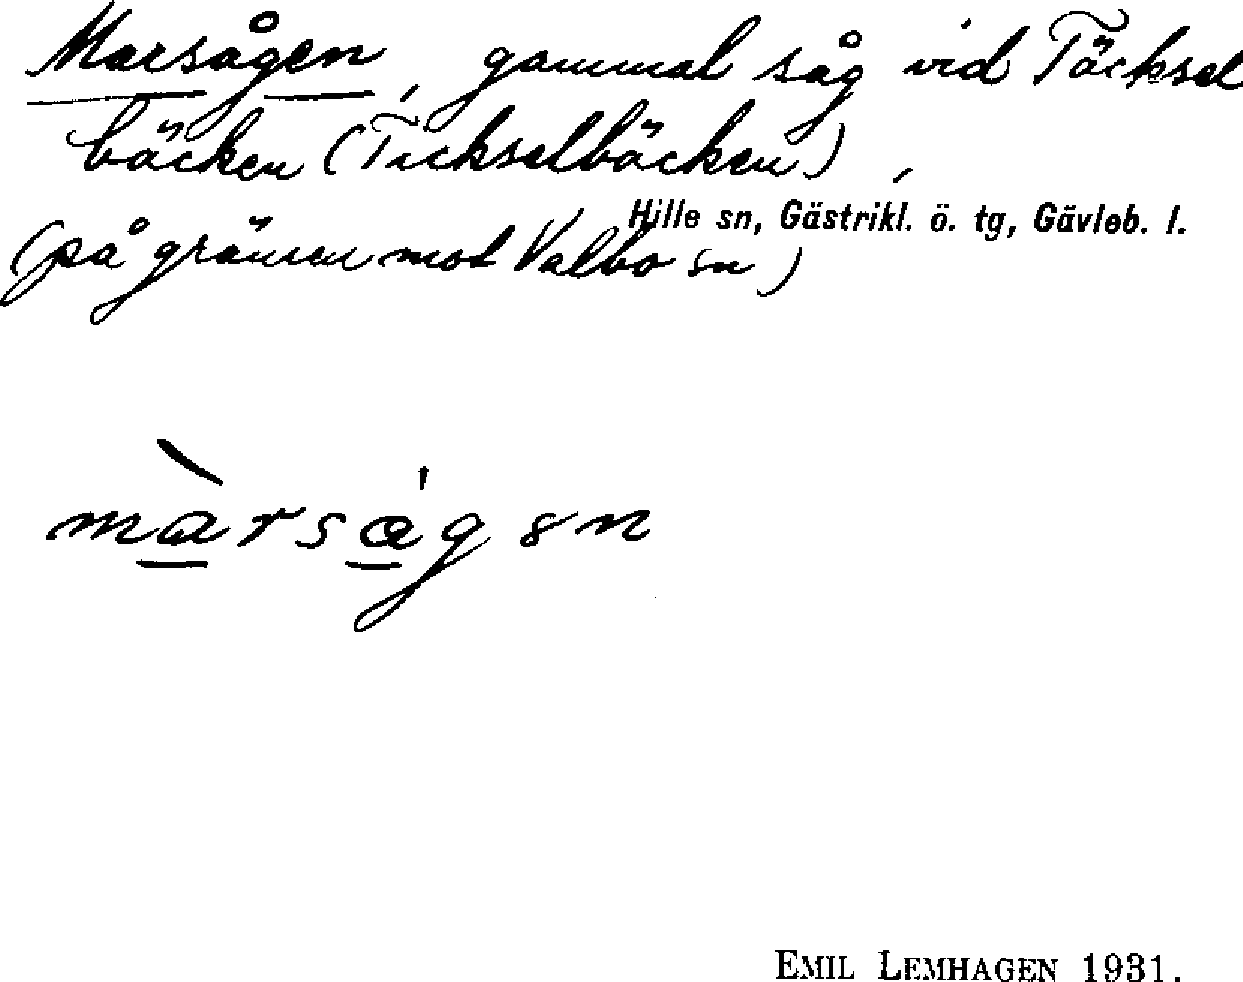 Marsågen, gammal såg vid Täcksel
bäcken (Tickselbäcken),
Hille sn, Gästrikl. ö. tg, Gävleb. l.
(på gränsen mot Valbo sn)
EMIL LEMHAGEN 1931.